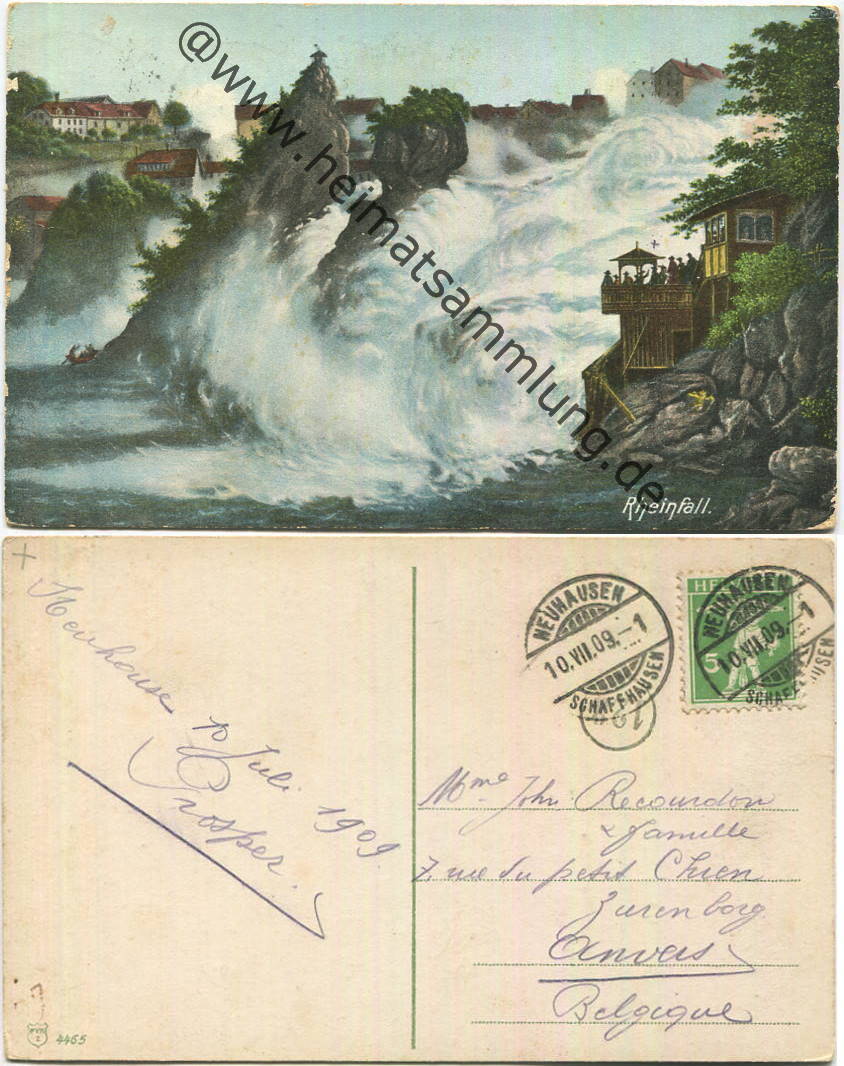 @www.heimatsammlung.de
Rheinfall.
+
Neuhause 10 Juli 1909.
Prosper.
NEUHAUSEN
10.VII.09.-1
SCHAFFHAUSEN
HE
5
NEUHAUSEN
10.VII.09.-1
SCHAFFHAUSEN
Mme John Recourdon
& famille
7 rue du petit Chien
Zurenborg
Anvers
Belgique
4465